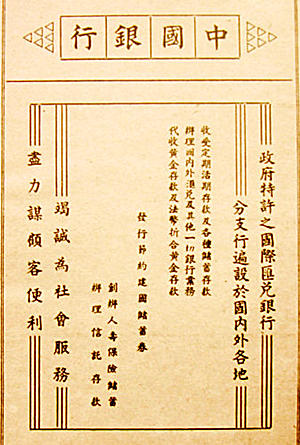 中國銀行
政府特許之國際匯兌銀行
分支行遍設於國內外各地
收受定期活期存款及各種儲蓄存款
辦理國內外滙兌及其他一切銀行業務
代收黃金存款及法幣折合黃金存款
發行節約建國儲蓄券
創辦人壽保險儲蓄
辦理信託存款
竭誠為社會服務
盡力謀顧客便利